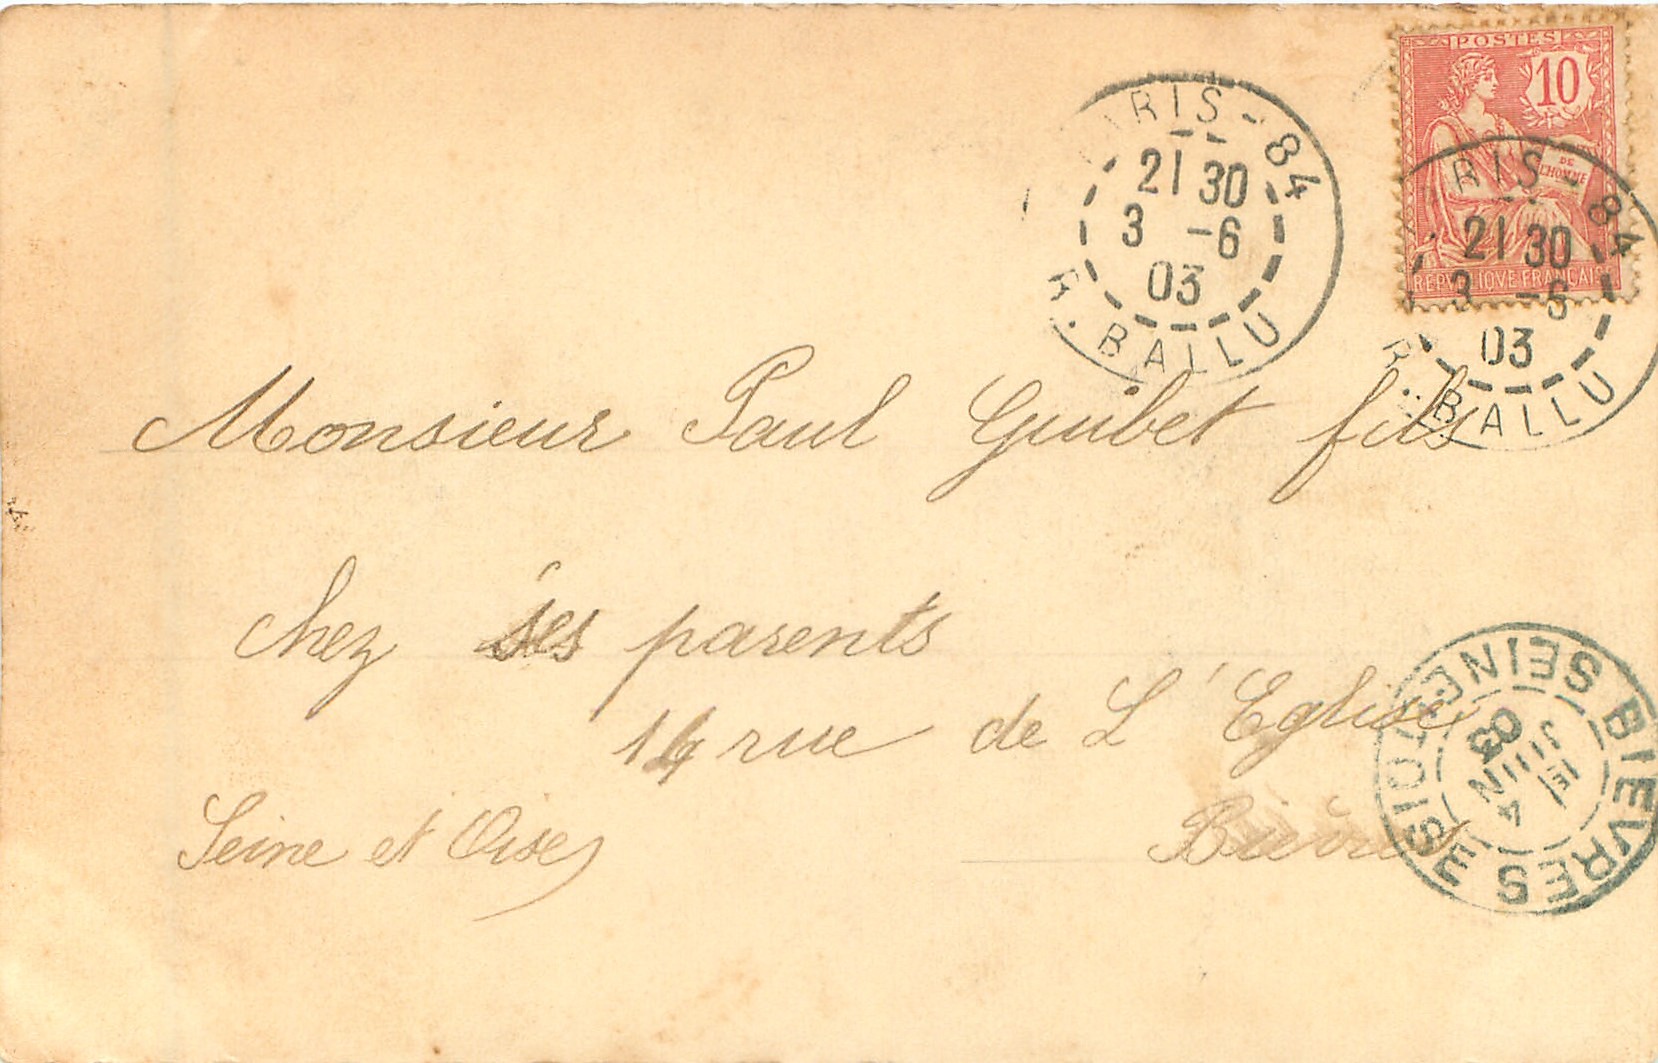 POSTES
10
DE
L'HOMME
REPVBLIQVE FRANÇAISE
RIS - 84
21 30
3 -6
03
R. BALLU
RIS - 84
21 30
3 -6
03
R. BALLU
Monsieur Paul Guibet fils
chez ses parents
14 rue de L'Eglise
Seine et Oise
Bièvres
BIEVRES
SEINE ET OISE
1E
4
JUIN
03